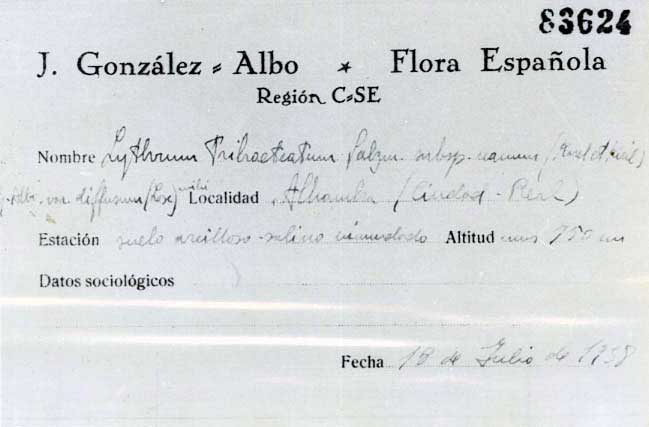 83624
J. González-Albo * Flora Española
Región C-SE
Nombre Lythrum Tribracteatum Salzm. subsp. nanum
-Albo. var diffusum (Lge) mihi Localidad Alhambra (Ciudad-Real)
Estación suelo arcilloso-salino inundado Altitud 750 m
Datos sociológicos
Fecha 18 de Julio de 1938